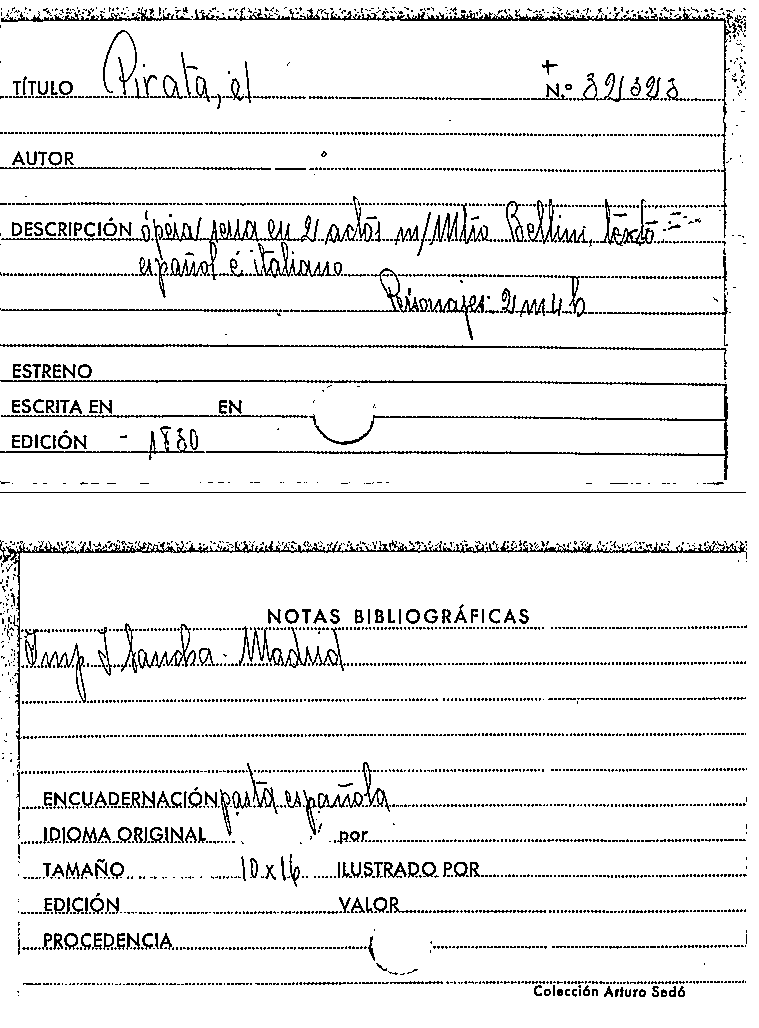 TÍTULO Pirata, el
+
N.º 32323
AUTOR
DESCRIPCIÓN ópera seria en 2 actos m/ Mtro Bellini, texto
español é italiano
Personajes: 2 m 4 h
ESTRENO
ESCRITA EN EN
EDICIÓN - 1830
NOTAS BIBLIOGRÁFICAS
Imp. I Sancha - Madrid
ENCUADERNACIÓN pasta española
IDIOMA ORIGINAL por
TAMAÑO 10 x 16 ILUSTRADO POR
EDICIÓN VALOR
PROCEDENCIA
Colección Arturo Sedó